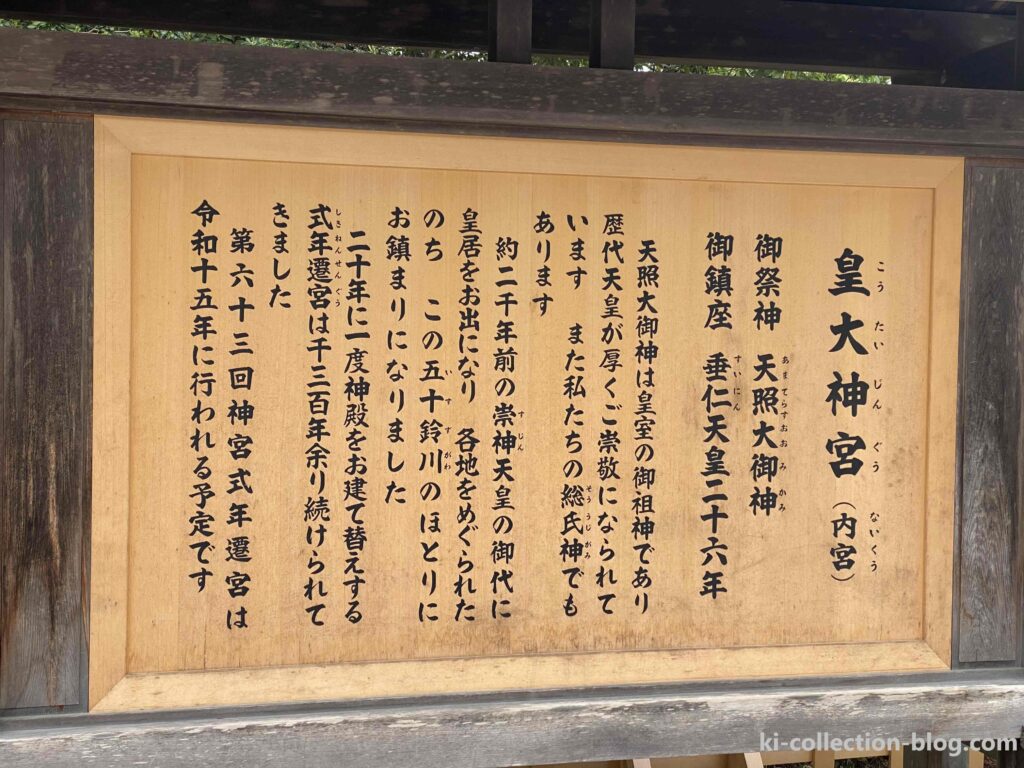 皇大神宮（内宮）
こうたいじんぐう ないくう
御祭神 天照大御神
あまてらすおおみかみ
御鎮座 垂仁天皇二十六年
すいにん
天照大御神は皇室の御祖神であり
歴代天皇が厚くご崇敬になられて
います また私たちの総氏神でも
そううじがみ
あります
約二千年前の崇神天皇の御代に
すじん
皇居をお出になり 各地をめぐられた
のち この五十鈴川のほとりに
いすずがわ
お鎮まりになりました
二十年に一度神殿をお建て替えする
式年遷宮は千三百年余り続けられて
しきねんせんぐう
きました
第六十三回神宮式年遷宮は
令和十五年に行われる予定です
ki-collection-blog.com